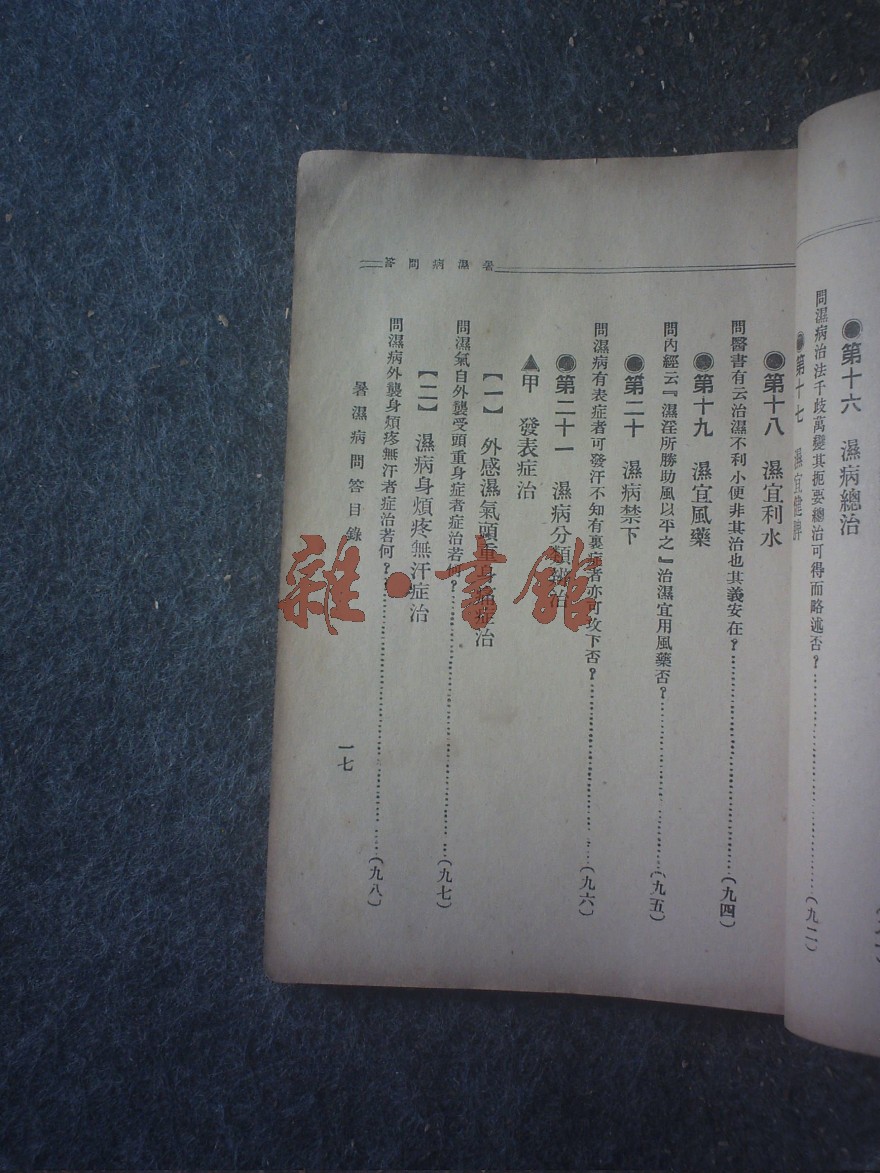 暑濕病問答
●第十六　濕病總治
問濕病治法千歧萬變其扼要總治可得而略述否？……(九二)
●第十七　濕宜健脾
●第十八　濕宜利水
問醫書有云治濕不利小便非其治也其義安在？……(九四)
●第十九　濕宜風藥
問內經云『濕淫所勝助風以平之』治濕宜用風藥否？……(九五)
●第二十　濕病禁下
問濕病有表症者可發汗不知有裏症者亦可攻下否？……(九六)
●第二十一　濕病分類 治
▲甲　發表症治
【一】　外感濕氣頭重身 症治
問濕氣自外襲受頭重身症者症治若何？……(九七)
【二】　濕病身煩疼無汗症治
問濕病外襲身煩疼無汗者症治若何？……(九八)
暑濕病問答目錄
一七
雜·書館